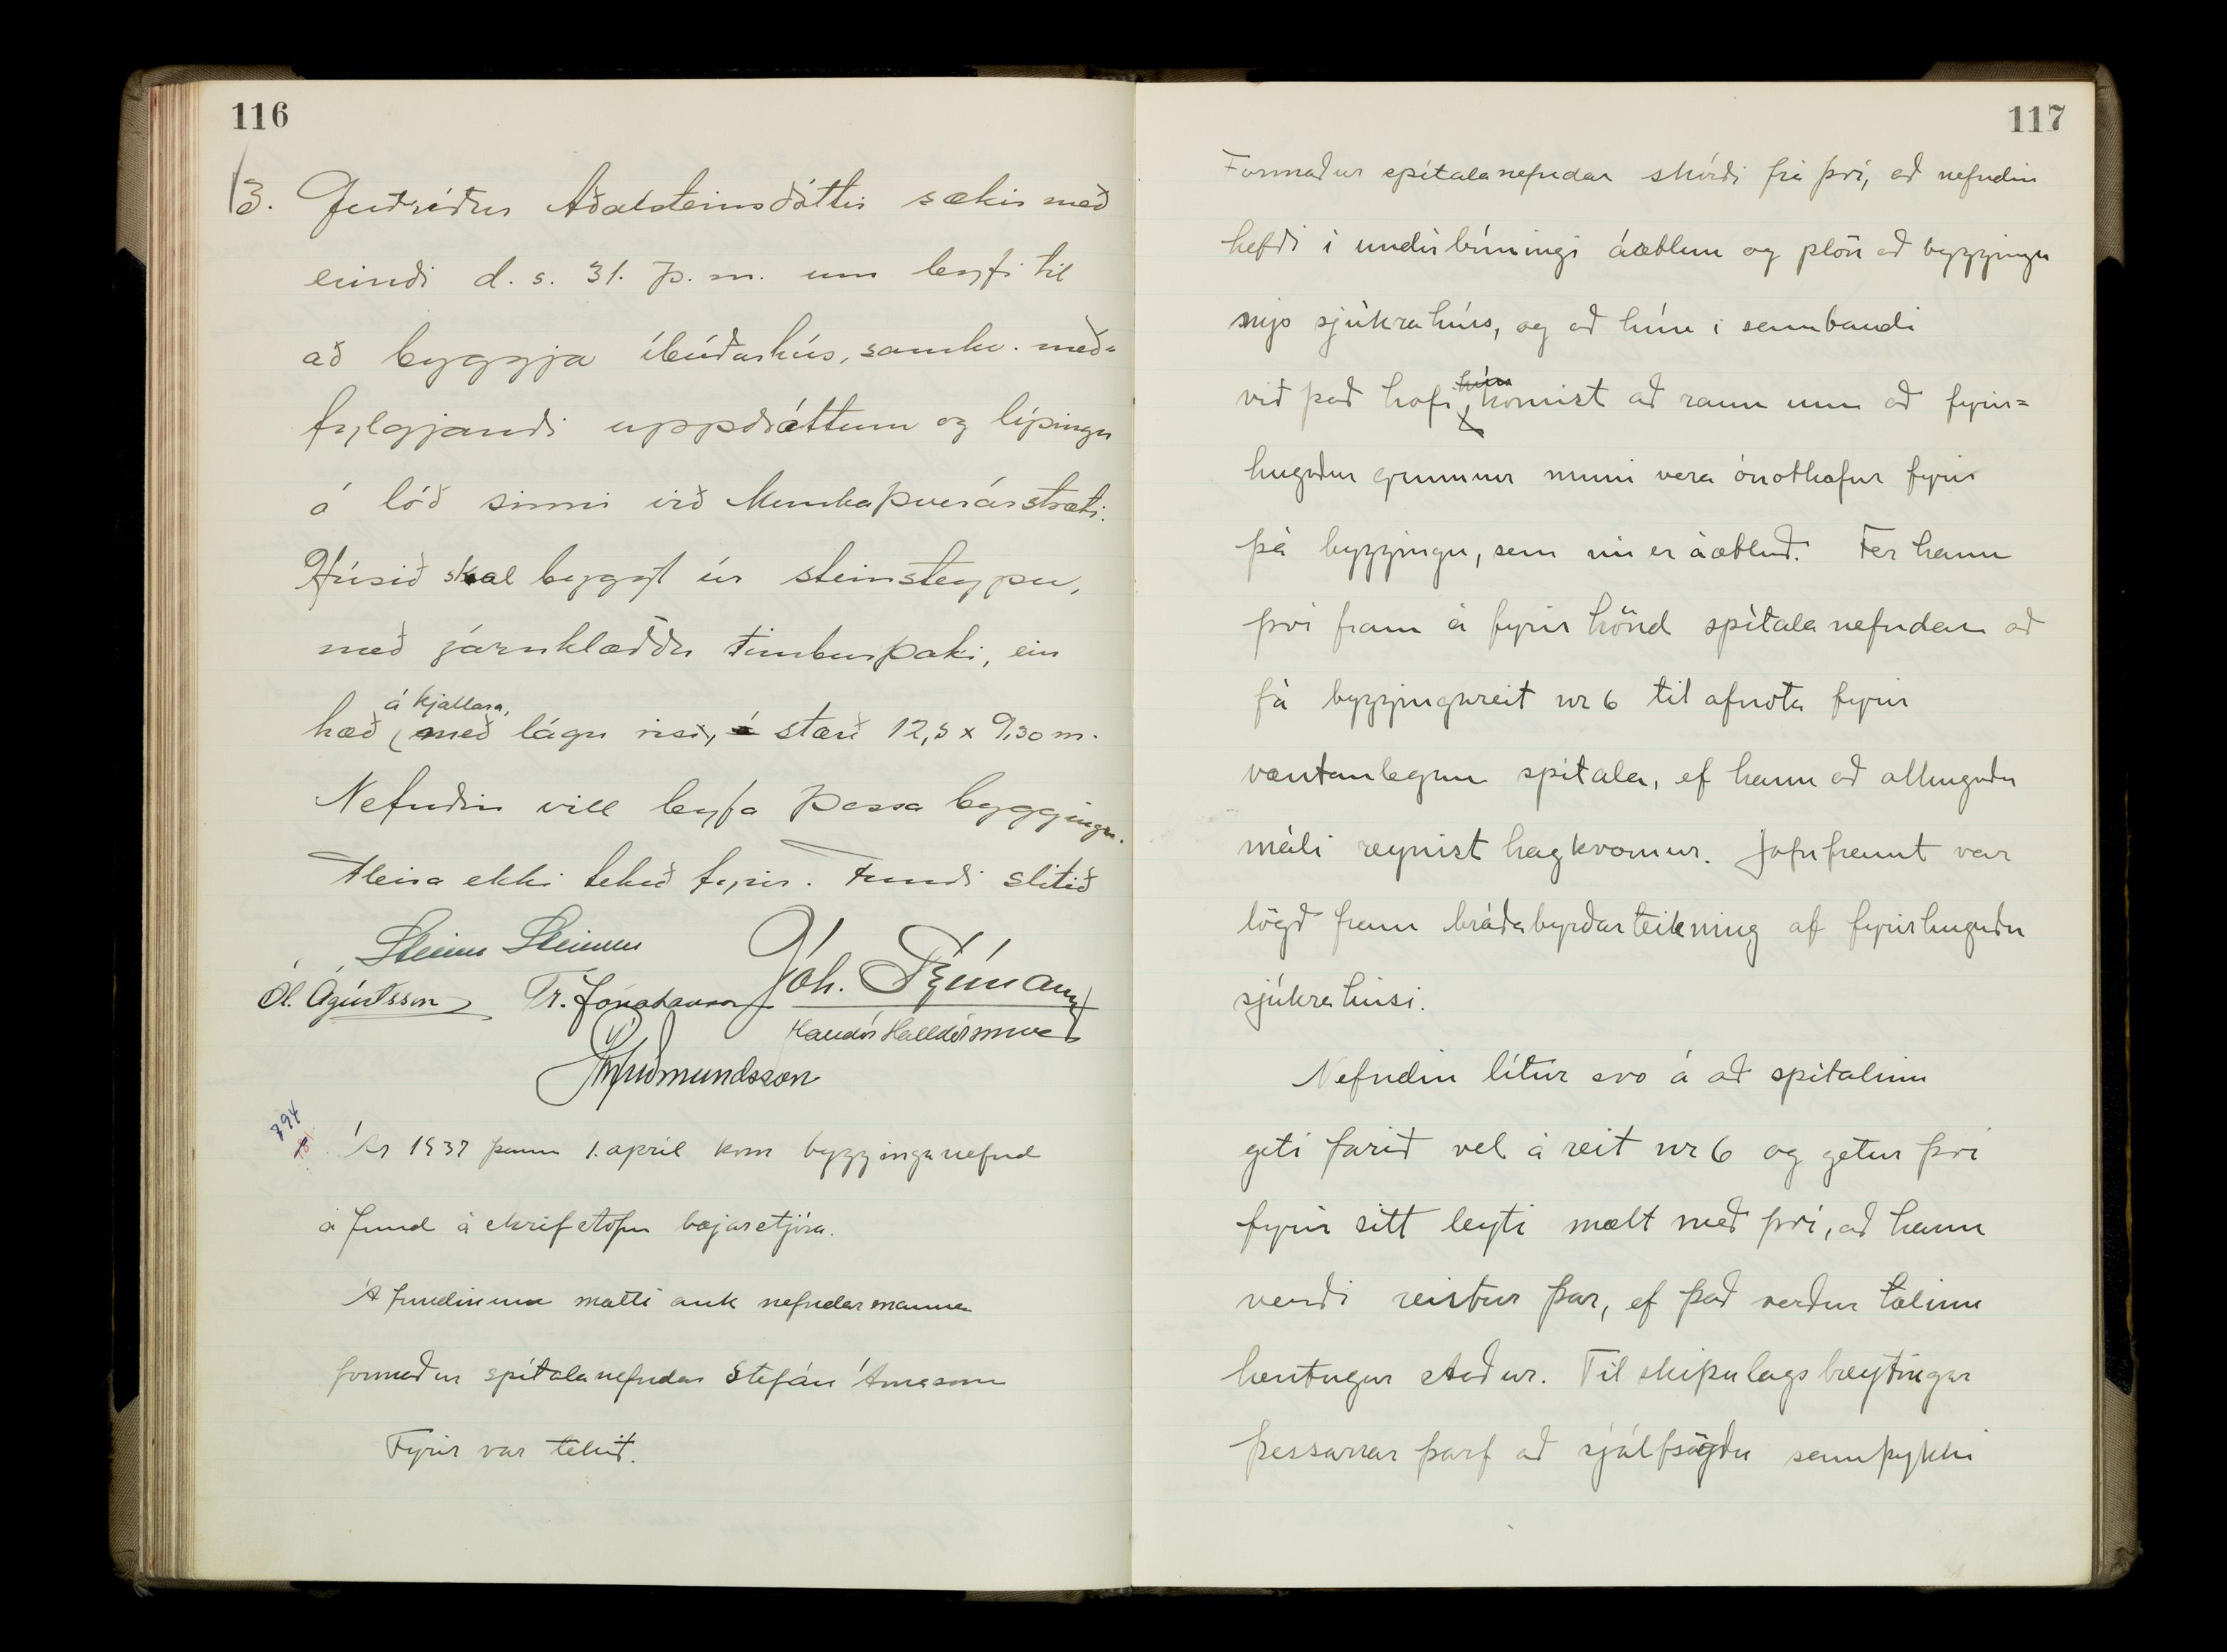 116
3. Guðríður Aðalsteinsdóttir sækir með
erindi d. s. 31. þ. m. um leyfi til
að byggja íbúðarhús, samkv. með-
fylgjandi uppdráttum og lýsingu
á lóð sinni við Munkaþverárstræti.
Húsið skal byggt úr steinsteypu,
með járnklæddu timburþaki, ein
á kjallara,
hæð með lágu risi, á stærð 12,5 x 9,30 m.
Nefndin vill leyfa þessa byggingu.
Fleira ekki tekið fyrir. Fundi slitið
Steinn Steinsen
Ól. Ágústsson Tr. Jónatansson Jóh.
Halldór Halldórsson
Guðmundsson
794
Ár 1937 þann 1. apríl kom bygginganefnd
á fund á skrifstofu bæjarstjóra.
Á fundinum mætti auk nefndarmanna
formaður spítalanefndar Stefán Árnason
Fyrir var tekið.
117
Formaður spítalanefndar skýrði frá því, að nefndin
hefði í undirbúningi áætlun og plön að byggingu
nýs sjúkrahúss, og að hún í sambandi
hún
við það hafi komist að raun um að fyrir=
hugaður grunnur muni vera ónothæfur fyrir
þá byggingu, sem nú er áætluð. Fer hann
því fram á fyrir hönd spítalanefndar að
fá byggingareit nr 6 til afnota fyrir
væntanlegan spítala, ef hann að athuguðu
máli reynist hagkvæmur. Jafnframt var
lögð fram bráðabyrðarteikning af fyrirhuguðu
sjúkrahúsi.
Nefndin lítur svo á að spítalinn
geti farið vel á reit nr 6 og getur því
fyrir sitt leyti mælt með því, að hann
verði reistur þar, ef það verður talinn
hentugur staður. Til skipulagsbreytingar
þessarrar þarf að sjálfsögðu samþykki